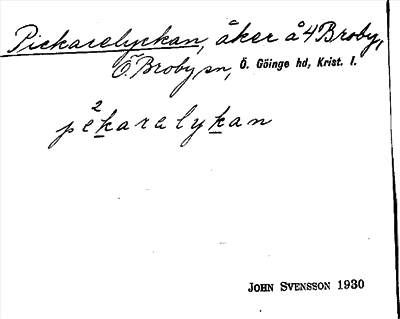 Pickarelyckan, åker å 4 Broby,
Ö. Broby sn, Ö. Göinge hd, Krist. l.
2
pekarelykan
JOHN SVENSSON 1930